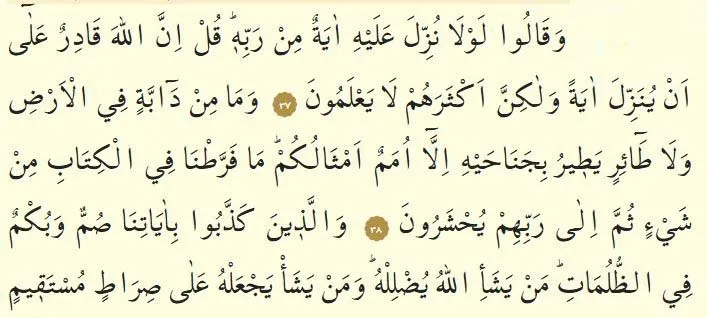 وَقَالُوا لَوْلَا نُزِّلَ عَلَيْهِ اٰيَةٌ مِنْ رَبِّه۪ۜ قُلْ اِنَّ اللّٰهَ قَادِرٌ عَلٰٓى
اَنْ يُنَزِّلَ اٰيَةً وَلٰكِنَّ اَكْثَرَهُمْ لَا يَعْلَمُونَ ﴿٣٧﴾ وَمَا مِنْ دَٓابَّةٍ فِي الْاَرْضِ
وَلَا طَٓائِرٍ يَط۪يرُ بِجَنَاحَيْهِ اِلَّٓا اُمَمٌ اَمْثَالُكُمْۜ مَا فَرَّطْنَا فِي الْكِتَابِ مِنْ
شَيْءٍ ثُمَّ اِلٰى رَبِّهِمْ يُحْشَرُونَ ﴿٣٨﴾ وَالَّذ۪ينَ كَذَّبُوا بِاٰيَاتِنَا صُمٌّ وَبُكْمٌ
فِي الظُّلُمَاتِۜ مَنْ يَشَأِ اللّٰهُ يُضْلِلْهُۜ وَمَنْ يَشَأْ يَجْعَلْهُ عَلٰى صِرَاطٍ مُسْتَق۪يمٍ